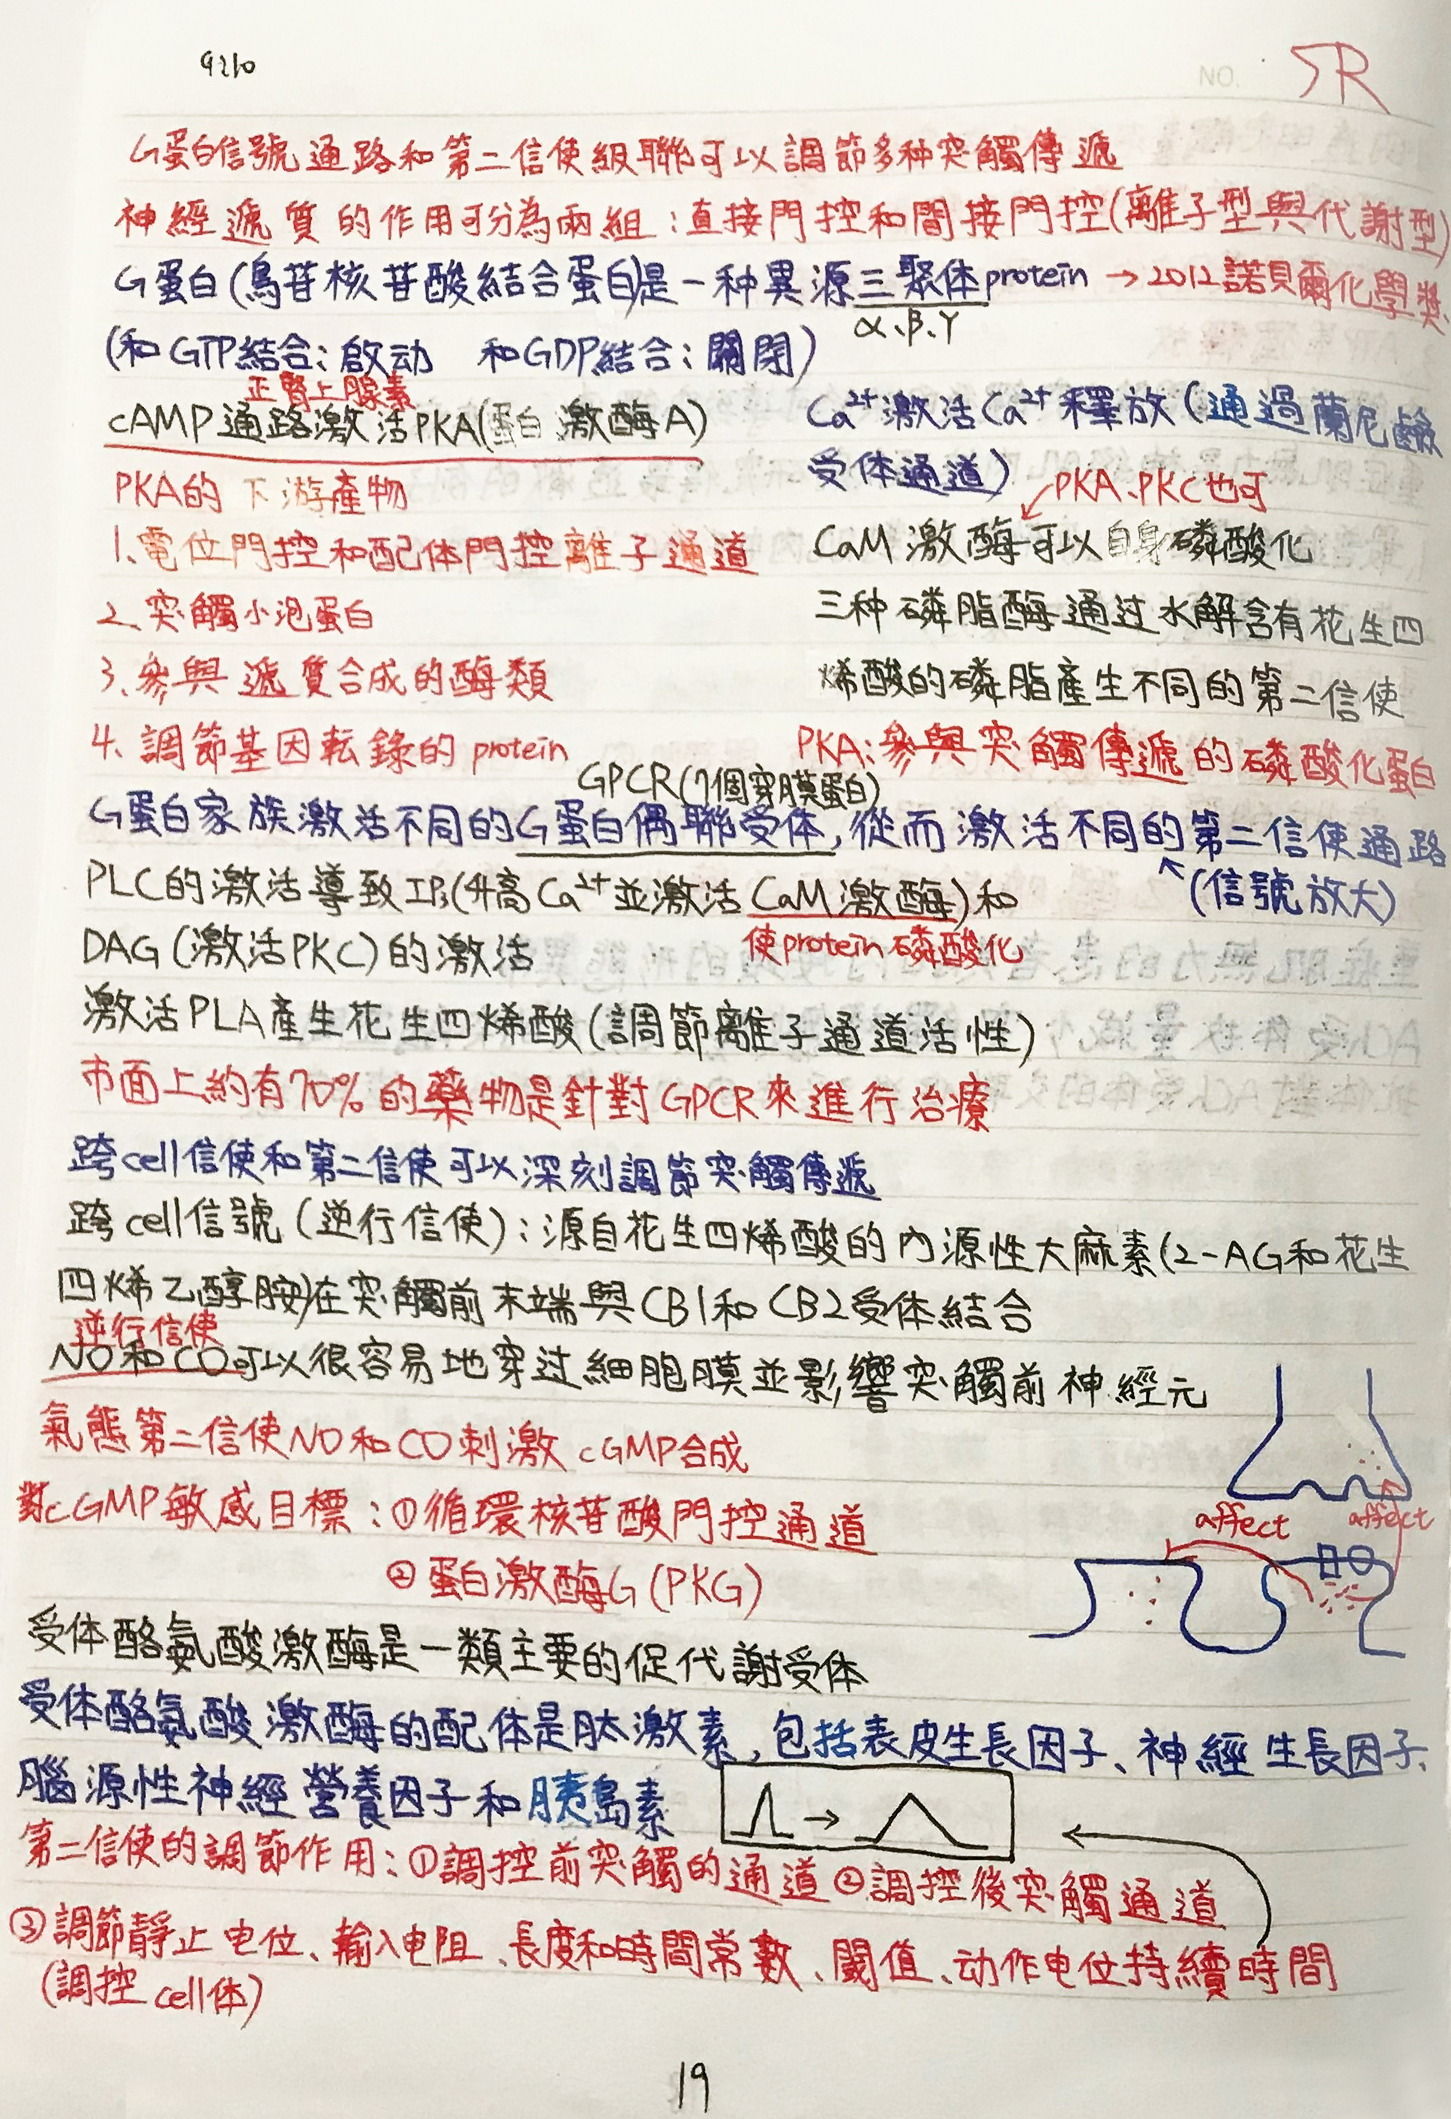 9210
NO.
SR
G蛋白信號通路和第二信使級聯可以調節多种突觸傳遞
神經遞質的作用可分為兩組:直接門控和間接門控(離子型與代謝型)
G蛋白(鳥苷核苷酸結合蛋白)是一种異源三聚体protein → 2012諾貝爾化學獎
α、β、γ
(和GTP結合:啟动 和GDP結合:關閉)
正腎上腺素
cAMP通路激活PKA(蛋白激酶A)
PKA的下游產物
1、電位門控和配体門控離子通道
2、突觸小泡蛋白
3、參與遞質合成的酶類
4、調節基因転錄的protein
Ca²⁺激活Ca²⁺釋放(通過蘭尼鹼
受体通道)
PKA、PKC也可
CaM激酶可以自身磷酸化
三种磷脂酶通过水解含有花生四
烯酸的磷脂產生不同的第二信使
PKA:參與突觸傳遞的磷酸化蛋白
GPCR(7個穿膜蛋白)
G蛋白家族激活不同的G蛋白偶聯受体,從而激活不同的第二信使通路
(信號放大)
PLC的激活導致IP₃(升高Ca²⁺並激活CaM激酶)和
使protein磷酸化
DAG(激活PKC)的激活
激活PLA產生花生四烯酸(調節離子通道活性)
市面上約有70%的藥物是針對GPCR來進行治療
跨cell信使和第二信使可以深刻調節突觸傳遞
跨cell信號(逆行信使):源自花生四烯酸的內源性大麻素(2-AG和花生
四烯乙醇胺)在突觸前末端與CB1和CB2受体結合
逆行信使
NO和CO可以很容易地穿过細胞膜並影響突觸前神經元
氣態第二信使NO和CO刺激cGMP合成
對cGMP敏感目標:①循環核苷酸門控通道
②蛋白激酶G(PKG)
affect
affect
受体酪氨酸激酶是一類主要的促代謝受体
受体酪氨酸激酶的配体是肽激素,包括表皮生長因子、神經生長因子、
腦源性神經營養因子和胰島素
第二信使的調節作用:①調控前突觸的通道②調控後突觸通道
③調節靜止电位、輸入电阻、長度和時間常數、閾值、动作电位持續時間
(調控cell体)
19